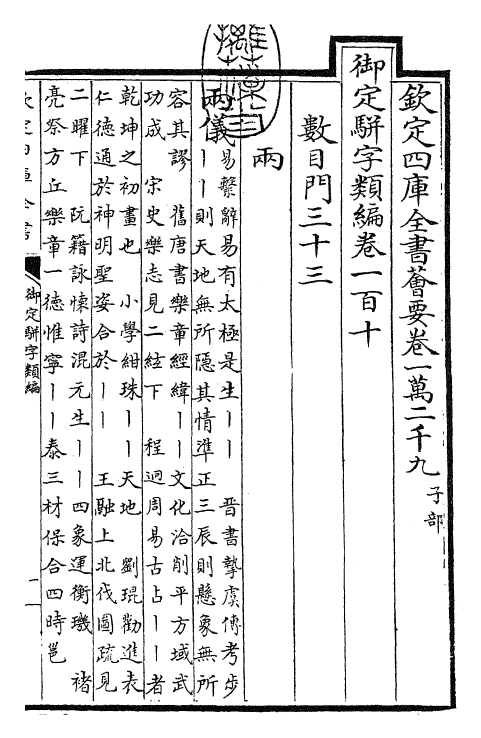 欽定四庫全書薈要卷一萬二千九 子部
御定駢字類編卷一百十
數目門三十三
兩
兩儀 易繫辭易有太極是生丨丨 晉書摯虞傳考步
丨丨則天地無所隱其情準正三辰則懸象無所
容其謬 舊唐書樂章經緯丨丨文化洽削平方域武
功成 宋史樂志見二絃下 程迥周易古占丨丨者
乾坤之初畫也 小學紺珠丨丨天地 劉琨勸進表
仁德通於神明聖姿合於丨丨 王融上北伐圖疏見
二曜下 阮籍詠懐詩混元生丨丨四象運衡璣 褚
亮祭方丘樂章一德惟寧丨丨泰三材保合四時邕
欽定四庫全書
御定駢字類編
一